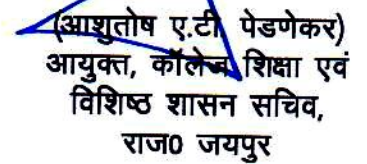 (आशुतोष ए.टी. पेडणेकर)
आयुक्त, कॉलेज शिक्षा एवं
विशिष्ठ शासन सचिव,
राज0 जयपुर